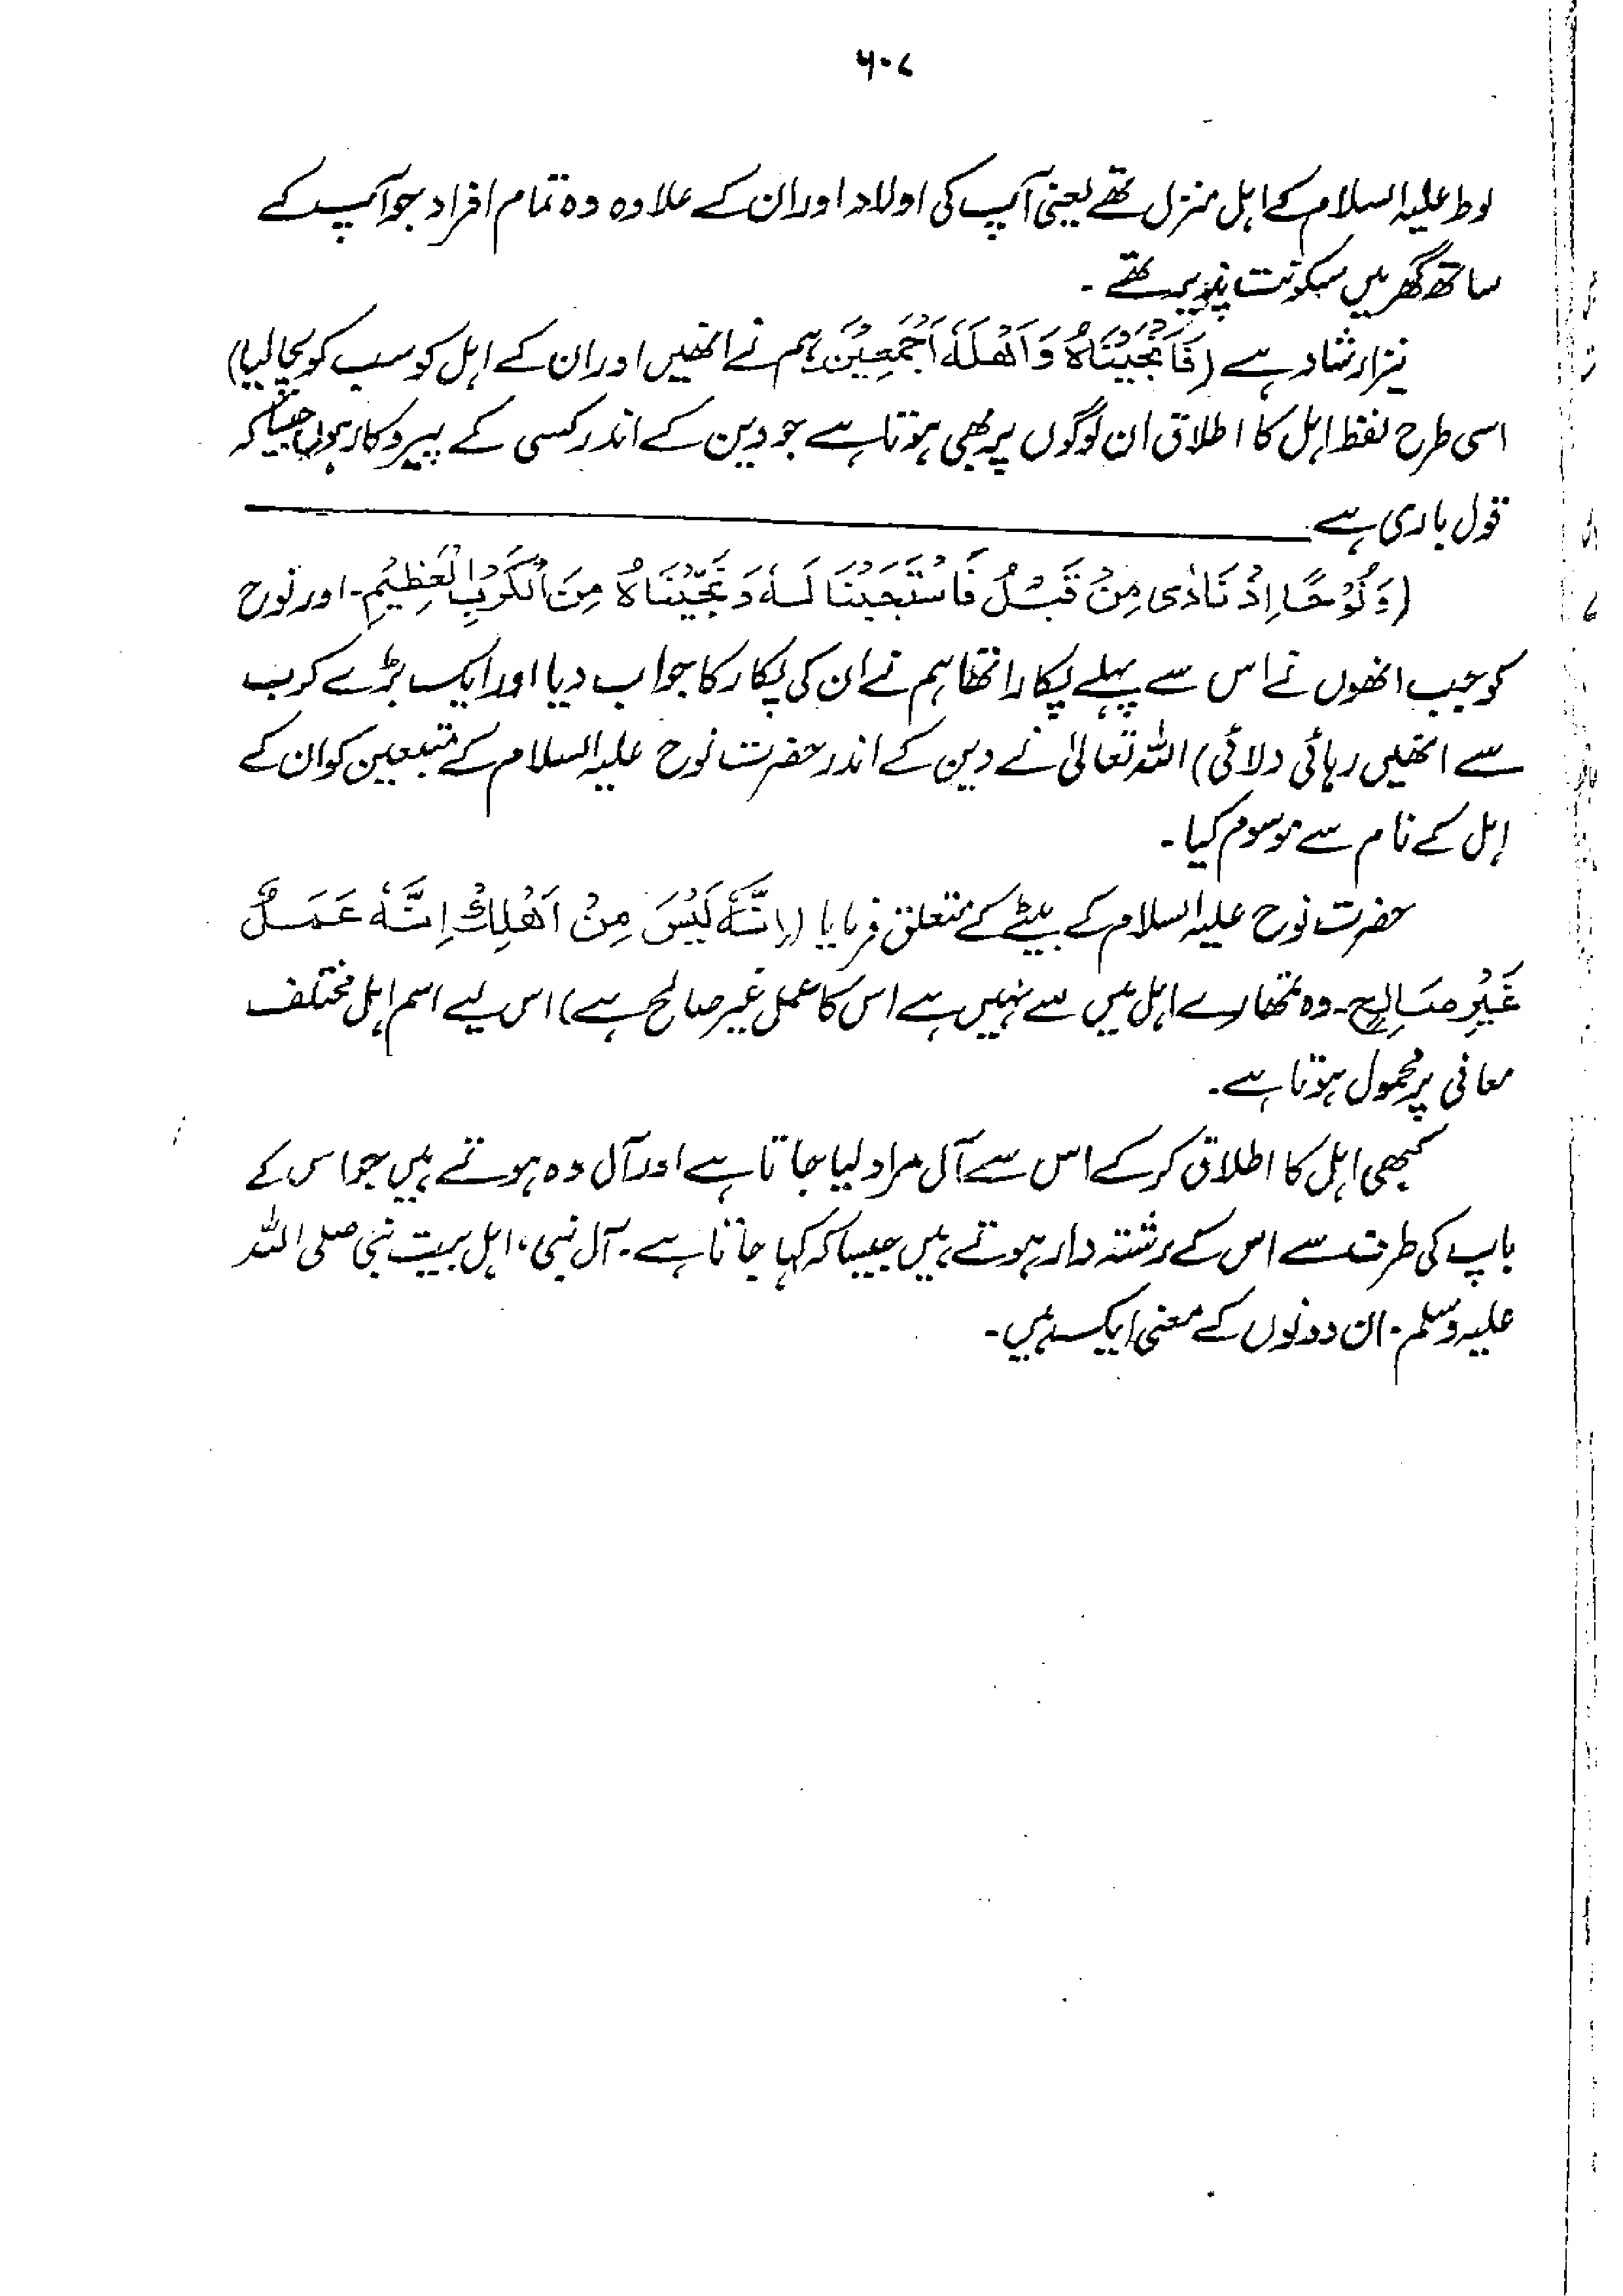 ۶۰۷
لوط علیہ السلام کے اہل منزل تھے یعنی آپ کی اولاد اور ان کے علاوہ وہ تمام افراد جو آپ کے
ساتھ گھر میں سکونت پذیر تھے ۔
نیز ارشاد ہے (فَاَنْجَیْنَاہُ وَاَھْلَہٗ اَجْمَعِیْنَ ہم نے انھیں اور ان کے اہل کو سب کو بچا لیا)
اسی طرح لفظ اہل کا اطلاق ان لوگوں پر بھی ہوتا ہے جو دین کے اندر کسی کے پیروکار ہوں جیسا کہ
قول باری ہے
(وَنُوْحًا اِذْ نَادٰی مِنْ قَبْلُ فَاسْتَجَبْنَا لَہٗ وَنَجَّیْنَاہُ مِنَ الْکَرْبِ الْعَظِیْمِ۔ اور نوح
کو جب انھوں نے اس سے پہلے پکارا تھا ہم نے ان کی پکار کا جواب دیا اور ایک بڑے کرب
سے انھیں رہائی دلائی) اللہ تعالیٰ نے دین کے اندر حضرت نوح علیہ السلام کے متبعین کو ان کے
اہل کے نام سے موسوم کیا ۔
حضرت نوح علیہ السلام کے بیٹے کے متعلق فرمایا (اِنَّہٗ لَیْسَ مِنْ اَھْلِکَ اِنَّہٗ عَمَلٌ
غَیْرُ صَالِحٍ۔ وہ تمھارے اہل میں سے نہیں ہے اس کا عمل غیر صالح ہے) اس لیے اسم اہل مختلف
معانی پر محمول ہوتا ہے۔
کبھی اہل کا اطلاق کر کے اس سے آل مراد لیا جاتا ہے اور آل وہ ہوتے ہیں جو اس کے
باپ کی طرف سے اس کے رشتہ دار ہوتے ہیں جیسا کہ کہا جاتا ہے۔ آل نبی، اہل بیت نبی صلی اللہ
علیہ وسلم۔ ان دونوں کے معنی ایک ہیں۔